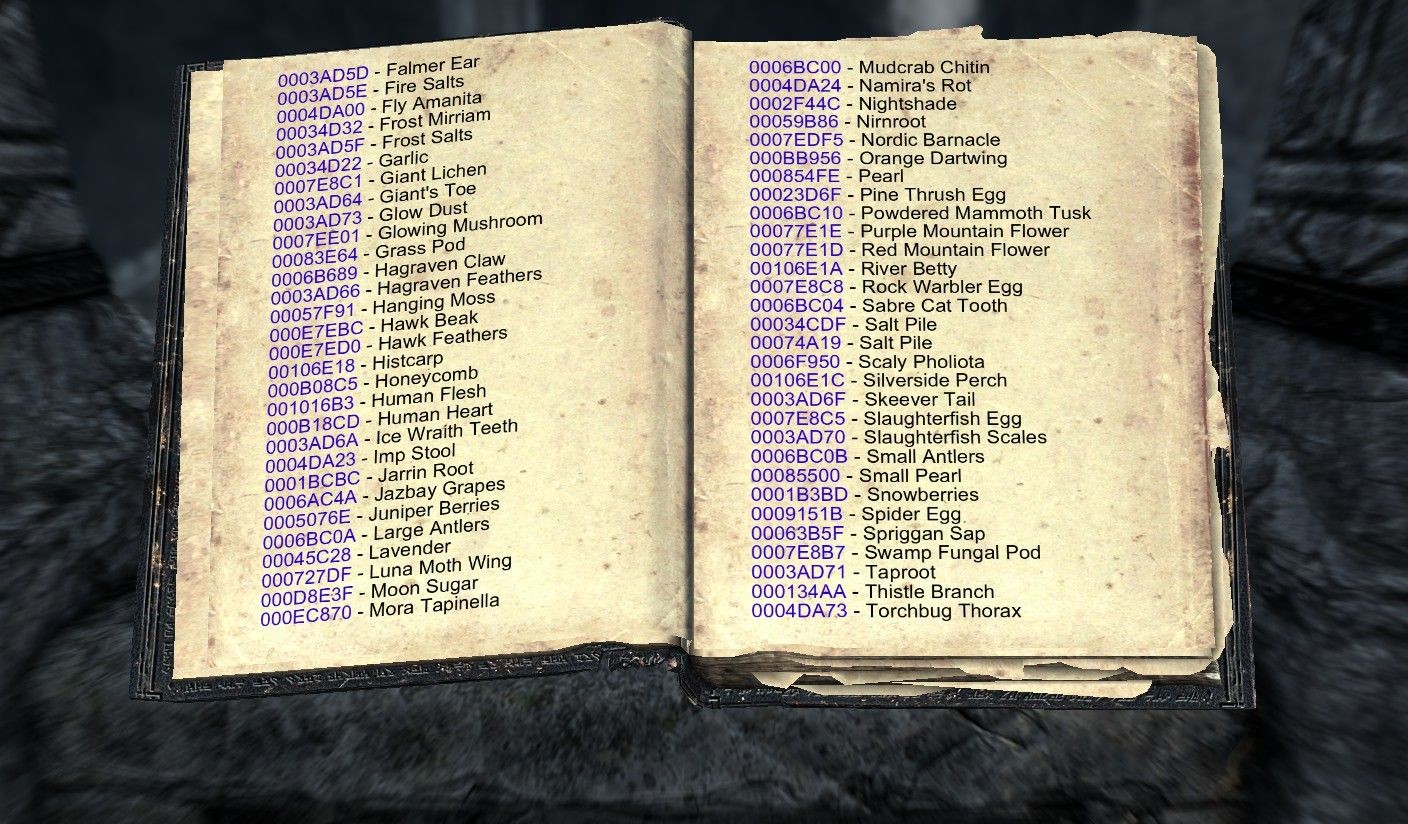 0003AD5D - Falmer Ear
0003AD5E - Fire Salts
0004DA00 - Fly Amanita
00034D32 - Frost Mirriam
0003AD5F - Frost Salts
00034D22 - Garlic
0007E8C1 - Giant Lichen
0003AD64 - Giant's Toe
0003AD73 - Glow Dust
0007EE01 - Glowing Mushroom
00083E64 - Grass Pod
0006B689 - Hagraven Claw
0003AD66 - Hagraven Feathers
00057F91 - Hanging Moss
000E7EBC - Hawk Beak
000E7ED0 - Hawk Feathers
00106E18 - Histcarp
000B08C5 - Honeycomb
001016B3 - Human Flesh
000B18CD - Human Heart
0003AD6A - Ice Wraith Teeth
0004DA23 - Imp Stool
0001BCBC - Jarrin Root
0006AC4A - Jazbay Grapes
0005076E - Juniper Berries
0006BC0A - Large Antlers
00045C28 - Lavender
000727DF - Luna Moth Wing
000D8E3F - Moon Sugar
000EC870 - Mora Tapinella
0006BC00 - Mudcrab Chitin
0004DA24 - Namira's Rot
0002F44C - Nightshade
00059B86 - Nirnroot
0007EDF5 - Nordic Barnacle
000BB956 - Orange Dartwing
000854FE - Pearl
00023D6F - Pine Thrush Egg
0006BC10 - Powdered Mammoth Tusk
00077E1E - Purple Mountain Flower
00077E1D - Red Mountain Flower
00106E1A - River Betty
0007E8C8 - Rock Warbler Egg
0006BC04 - Sabre Cat Tooth
00034CDF - Salt Pile
00074A19 - Salt Pile
0006F950 - Scaly Pholiota
00106E1C - Silverside Perch
0003AD6F - Skeever Tail
0007E8C5 - Slaughterfish Egg
0003AD70 - Slaughterfish Scales
0006BC0B - Small Antlers
00085500 - Small Pearl
0001B3BD - Snowberries
0009151B - Spider Egg
00063B5F - Spriggan Sap
0007E8B7 - Swamp Fungal Pod
0003AD71 - Taproot
000134AA - Thistle Branch
0004DA73 - Torchbug Thorax